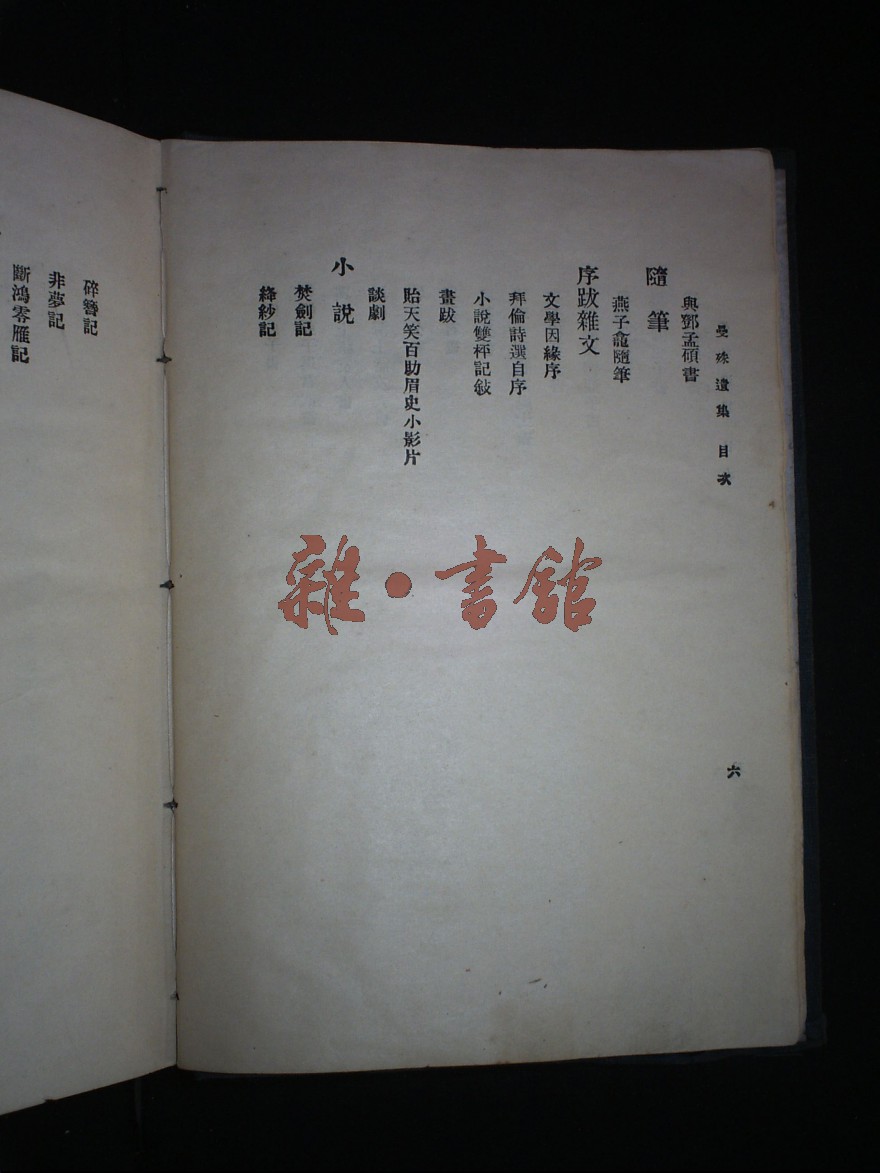 曼殊遺集 目次
六
與鄧孟碩書
隨筆
燕子龕隨筆
序跋雜文
文學因緣序
拜倫詩選自序
小說雙枰記敍
畫跋
貽天笑百助眉史小影片
談劇
小說
焚劍記
絳紗記
碎簪記
非夢記
斷鴻零雁記
雜·書館